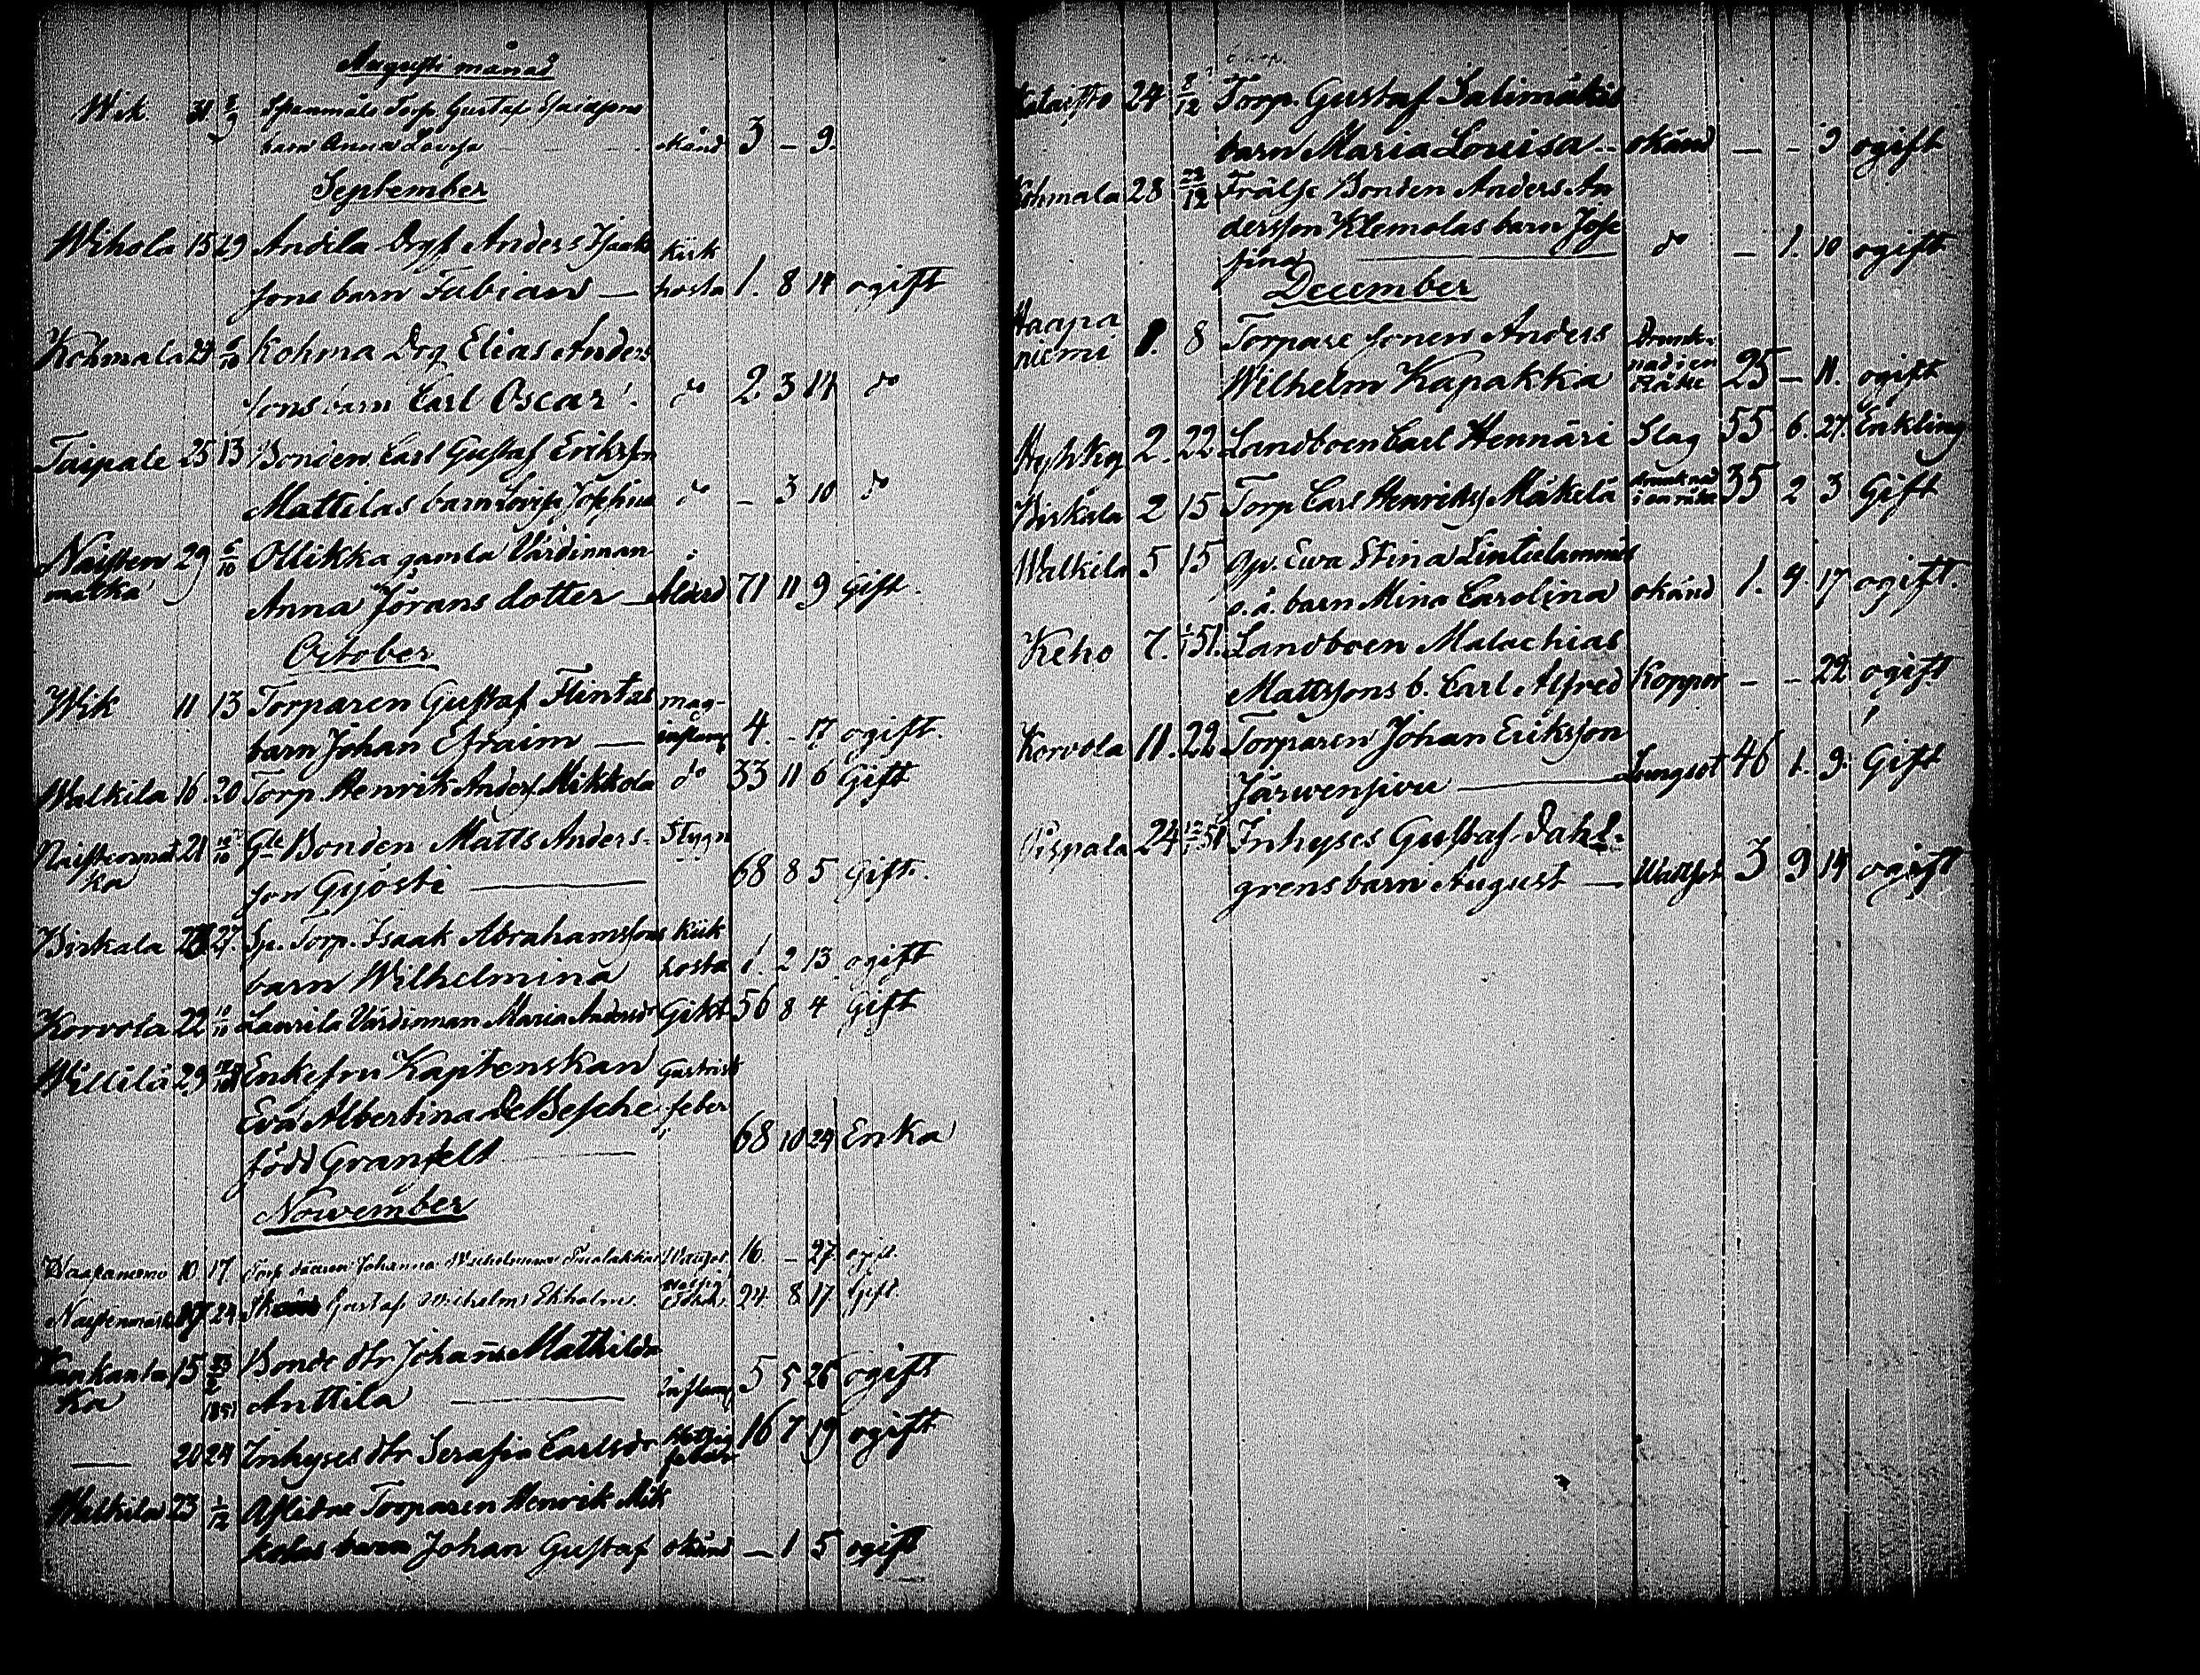 Augusti månad
Wik. 31 2/9 Torp. Gustaf Esaiassons
barn Anna Lovisa okänd 3 - 9.
September
Wihola 15 29 Andila Drgs Anders Isaaks
sons barn Fabian — Kik hosta 1. 8 14 ogift
Kohmala 29 6/10 Kohma Drg Elias Anders
sons barn Carl Oscar. do 2 3 14 do
Taipale 25 13 Bonden Carl Gustaf Eriksson
Mattilas barn Lovisa Josefina do - 3 10 do
Naisten 29 6/10 Ollikka gamla Värdinnan
matka Anna Jörans dotter — Ålderd 71 11 9 Gift.
October
Wik 11 13 Torparen Gustaf Flintas mag-
barn Johan Efraim — inflam 4. - 17 ogift.
Walkila 16 20 Torp. Henrik Anderss Mikkola do 33 11 6 Gift
Naistenmat 21 Gle Bonden Matts Anders- Stygn
ka son Gyösti — 68 8 5 Gift.
Birkala 23 27 Sp. Torp. Isaak Abrahamssons Kik
barn Wilhelmina hosta 1. 2 13 ogift
Korvola 22 Laurila Värdinnan Maria Andersdr Gikt 56 8 4 Gift
Willilä 29 Enkefru Kaptenskan Gastrisk
Eva Albertina De Besche feber
född Granfelt 68 10 24 Enka
November
Haapaniemi 10 17 Torp. Johanna Wilhelmina Wattsot 16. - 27 ogift.
Naistenmatk 24 Gustaf Wilhelm Ekholm. 24 8 17 Gift.
Kankanta 15 23/2 Bonde dtr Johanna Mathilda
ka 1851 Anttila — Inflam 5 5 26 ogift
— 20 24 Inhyses dtr Serafia Carlsdr feber 16 7 19 ogift
Walkila 23 1/12 Aflidne Torparen Henrik Mik
kolas barn Johan Gustaf okänd — 1 5 ogift
24 8/12 Torp. Gustaf Salimäkis
barn Maria Lovisa — okänd — - 9 ogift
Kohmala 28 22/12 Frälse Bonden Anders An
dersson Klemolas barn Jose
fina — do — 1. 10 ogift
December
Haapa
niemi 1. 8 Torpare sonen Anders Drunk-
Wilhelm Kapakka nad i en Råke 25 — 11. ogift
Hyhky 2. 22 Landboen Carl Hennäri Slag 55 6. 27. Enkling
Birkala 2 15 Torp. Carl Henrikss Mäkelä Drunknad i en råke 35 2 3 Gift
Walkila 5 15 Qp. Ewa Stina Lintulammis
o.ä. barn Mina Carolina okänd 1. 4. 17 ogift.
Keho 7. 1/1 51. Landboen Malachias
Mattssons b. Carl Alfred Koppor - - 22 ogift
Korvola 11. 22 Torparen Johan Eriksson
Järwensivu — Lungsot 46 1. 9. Gift
Pispala 24 12/1 51 Inhyses Gustaf Dahl-
grens barn August — Wattsot 3 9 14 ogift